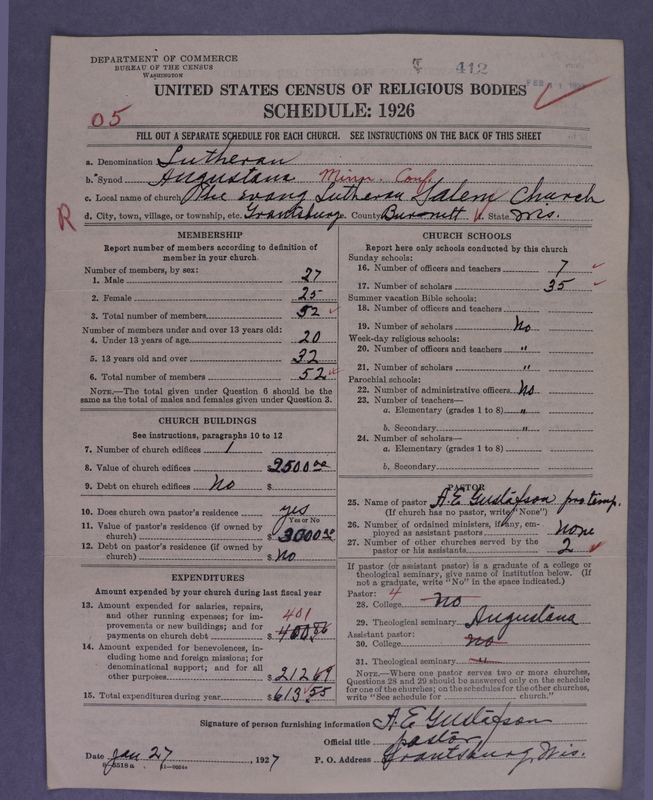 DEPARTMENT OF COMMERCE
BUREAU OF THE CENSUS
WASHINGTON
412
UNITED STATES CENSUS OF RELIGIOUS BODIES
SCHEDULE: 1926
05
FILL OUT A SEPARATE SCHEDULE FOR EACH CHURCH. SEE INSTRUCTIONS ON THE BACK OF THIS SHEET
a. Denomination Lutheran
b. Synod Augustana Minn. Conf.
c. Local name of church Evang Lutheran Salem Church
R
d. City, town, village, or township, etc. Grantsburg County Burnett State Wis.
MEMBERSHIP
Report number of members according to definition of
member in your church
Number of members, by sex:
1. Male 27
2. Female 25
3. Total number of members 52
Number of members under and over 13 years old:
4. Under 13 years of age 20
5. 13 years old and over 32
6. Total number of members 52
NOTE.—The total given under Question 6 should be
same as the total of males and females given under Question 3.
CHURCH BUILDINGS
See instructions, paragraphs 10 to 12
7. Number of church edifices 1
8. Value of church edifices $2500 00
9. Debt on church edifices No $
10. Does church own pastor's residence yes
Yes or No
11. Value of pastor's residence (if owned by
church) $3000 00
12. Debt on pastor's residence (if owned by
church) $ No
EXPENDITURES
Amount expended by your church during last fiscal year
13. Amount expended for salaries, repairs,
and other running expenses; for im-
provements or new buildings; and for
payments on church debt $ 401
14. Amount expended for benevolences, in-
cluding home and foreign missions; for
denominational support; and for all
other purposes 212 69
15. Total expenditures during year $613 55
CHURCH SCHOOLS
Report here only schools conducted by this church
Sunday schools:
16. Number of officers and teachers 7
17. Number of scholars 35
Summer vacation Bible schools:
18. Number of officers and teachers
19. Number of scholars No
Week-day religious schools:
20. Number of officers and teachers "
21. Number of scholars "
Parochial schools:
22. Number of administrative officers No
23. Number of teachers—
a. Elementary (grades 1 to 8) "
b. Secondary "
24. Number of scholars—
a. Elementary (grades 1 to 8)
b. Secondary
PASTOR
25. Name of pastor A. E. Gustafson pro temp.
(If church has no pastor, write "None")
26. Number of ordained ministers, if any, em-
ployed as assistant pastors none
27. Number of other churches served by the
pastor or his assistants 2
If pastor (or assistant pastor) is a graduate of a college or
theological seminary, give name of institution below. (If
not a graduate, write "No" in the space indicated.)
Pastor: 4
28. College No
29. Theological seminary Augustana
Assistant pastor:
30. College No
31. Theological seminary "
NOTE.—Where one pastor serves two or more churches,
Questions 28 and 29 should be answered only on the schedule
for one of the churches; on the schedules for the other churches,
write "See schedule for church."
Signature of person furnishing information A. E. Gustafson
Official title pastor
Date Jan 27, 1927 P. O. Address Grantsburg, Wis.